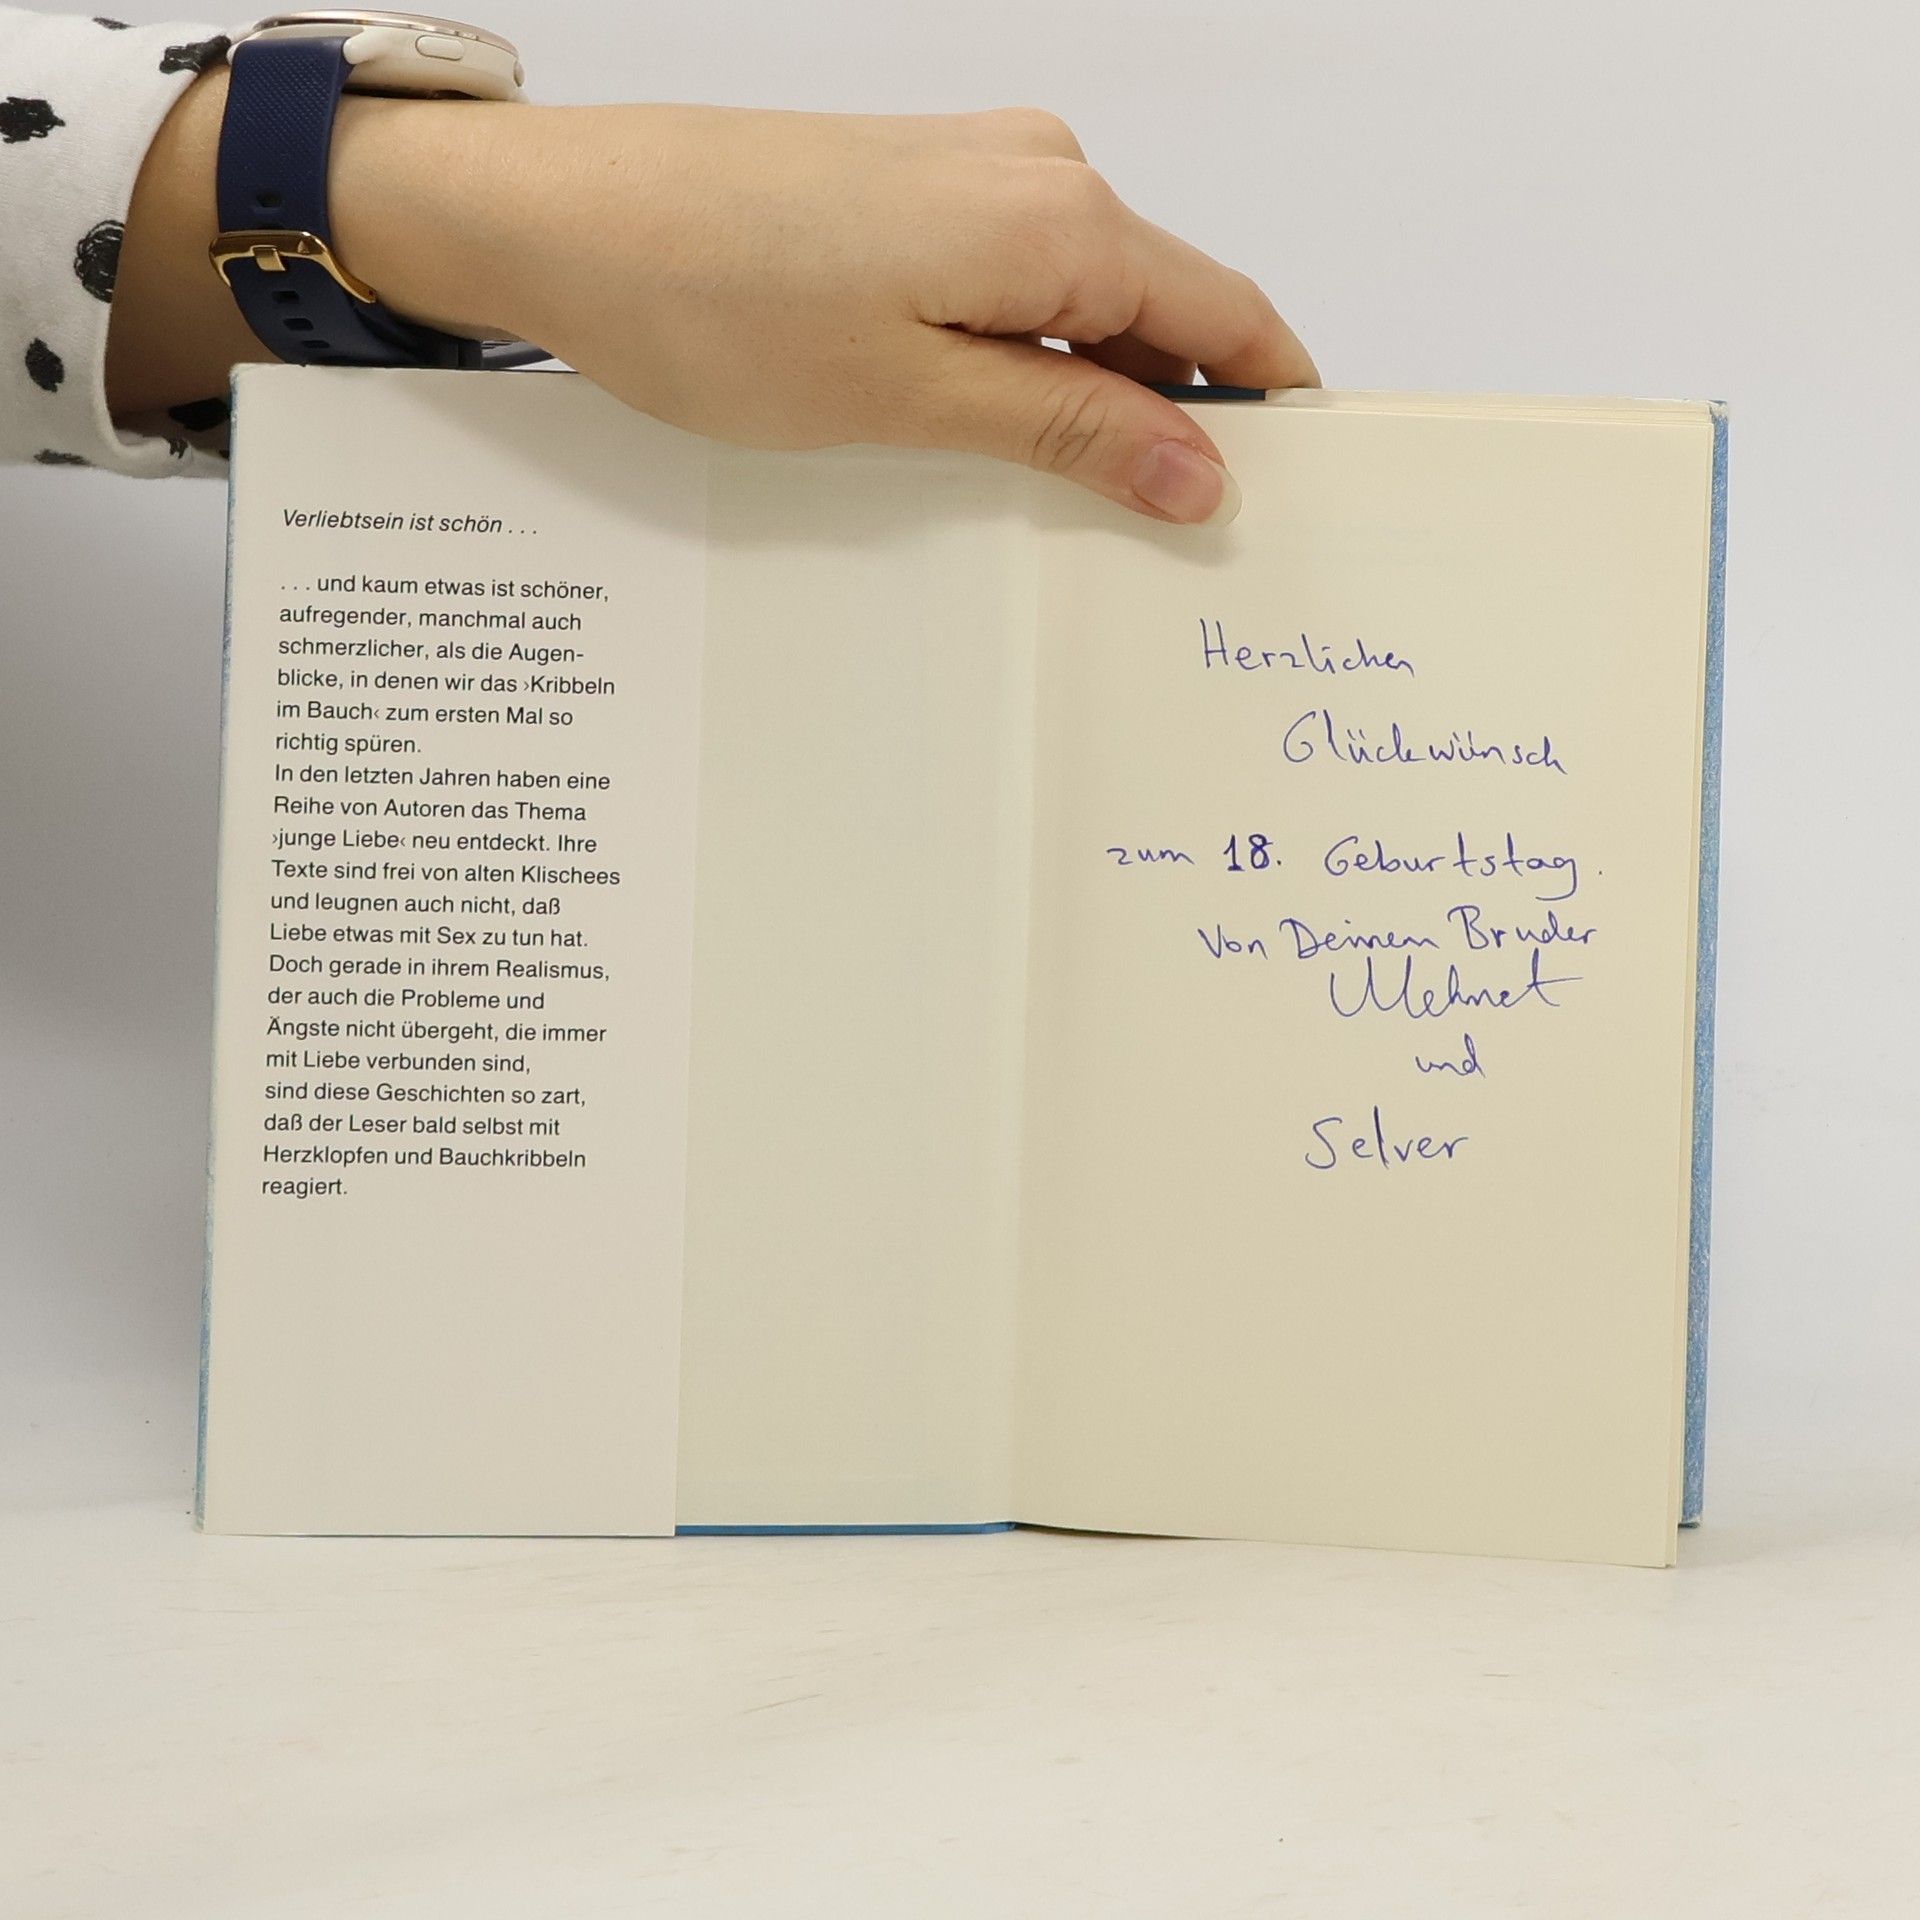 Verliebtsein ist schön . . .
. . . und kaum etwas ist schöner,
aufregender, manchmal auch
schmerzlicher, als die Augen-
blicke, in denen wir das ›Kribbeln
im Bauch‹ zum ersten Mal so
richtig spüren.
In den letzten Jahren haben eine
Reihe von Autoren das Thema
›junge Liebe‹ neu entdeckt. Ihre
Texte sind frei von alten Klischees
und leugnen auch nicht, daß
Liebe etwas mit Sex zu tun hat.
Doch gerade in ihrem Realismus,
der auch die Probleme und
Ängste nicht übergeht, die immer
mit Liebe verbunden sind,
sind diese Geschichten so zart,
daß der Leser bald selbst mit
Herzklopfen und Bauchkribbeln
reagiert.
Herzlichen
Glückwünsch
zum 18. Geburtstag.
Von Deinem Bruder
Mehmet
und
Selver